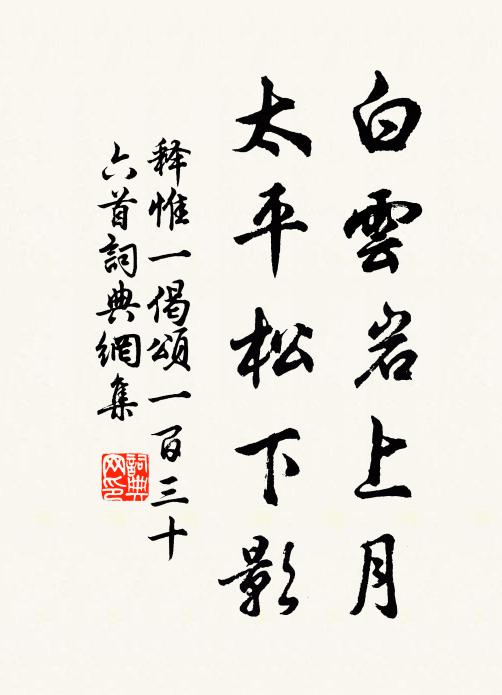 白雲岩上月
太平松下影
释惟一偈頌一百三十
六首詞典網集
詞典網印